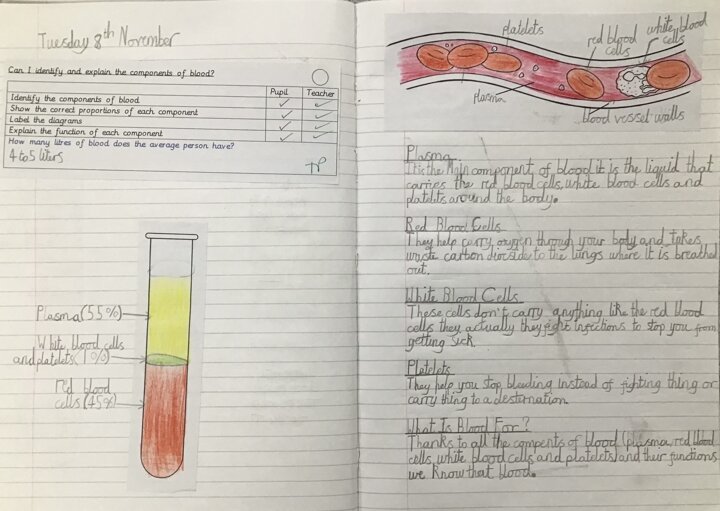 Tuesday 8th November
Can I identify and explain the components of blood?
Pupil Teacher
Identify the components of blood
Show the correct proportions of each component
Label the diagrams
Explain the function of each component
How many litres of blood does the average person have?
4 to 5 liters
Plasma (55%)
White blood cells
and platelets (1%)
red blood
cells (45%)
platelets
red blood
cells
white blood
cells
plasma
blood vessel walls
Plasma
It is the Main component of blood it is the liquid that
carries the red blood cells, white blood cells and
platelits around the body.
Red Blood Cells
They help carry oxygen through your body and takes
waste carbon dioxside to the lungs where it is breathed
out.
White Blood Cells
These cells don't carry anything like the red blood
cells they actually they fight infections to stop you from
getting sick.
Platelets
They help you stop bleeding instead of fighting thing or
carry thing to a desternation.
What Is Blood For?
Thanks to all the compents of blood (plasma, red blood
cells, white blood cells and platelets) and their functions
we know that blood.